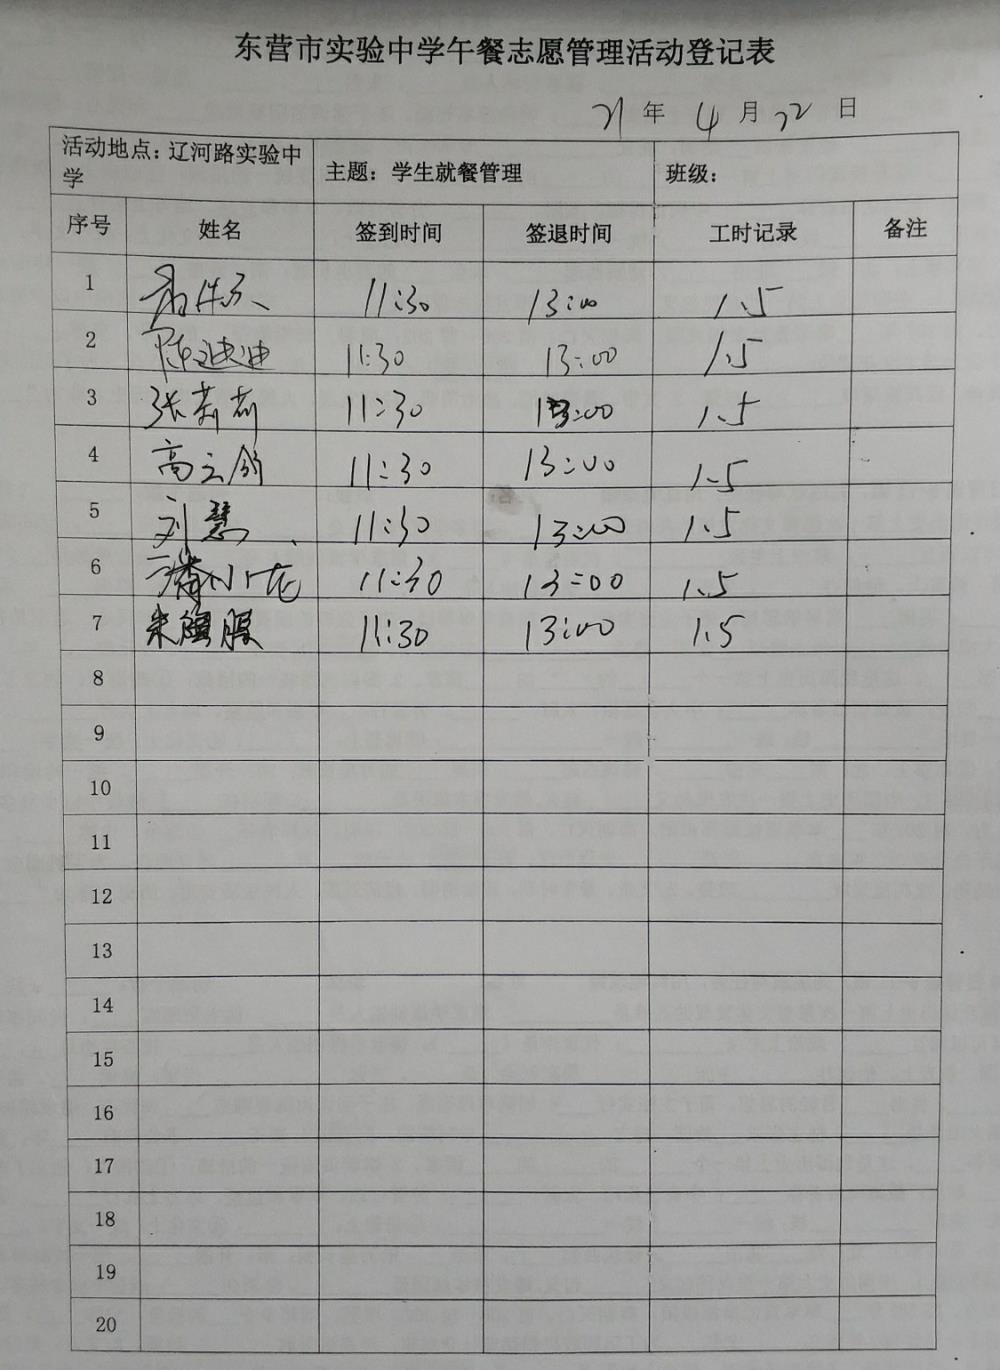 东营市实验中学午餐志愿管理活动登记表
21年4月22日
活动地点：辽河路实验中学 主题：学生就餐管理 班级：
序号 姓名 签到时间 签退时间 工时记录 备注
1 11:30 13:00 1.5
2 陈迪迪 11:30 13:00 1.5
3 张莉莉 11:30 13:00 1.5
4 高云 11:30 13:00 1.5
5 刘慧 11:30 13:00 1.5
6 潘小龙 11:30 13:00 1.5
7 朱 11:30 13:00 1.5
8
9
10
11
12
13
14
15
16
17
18
19
20